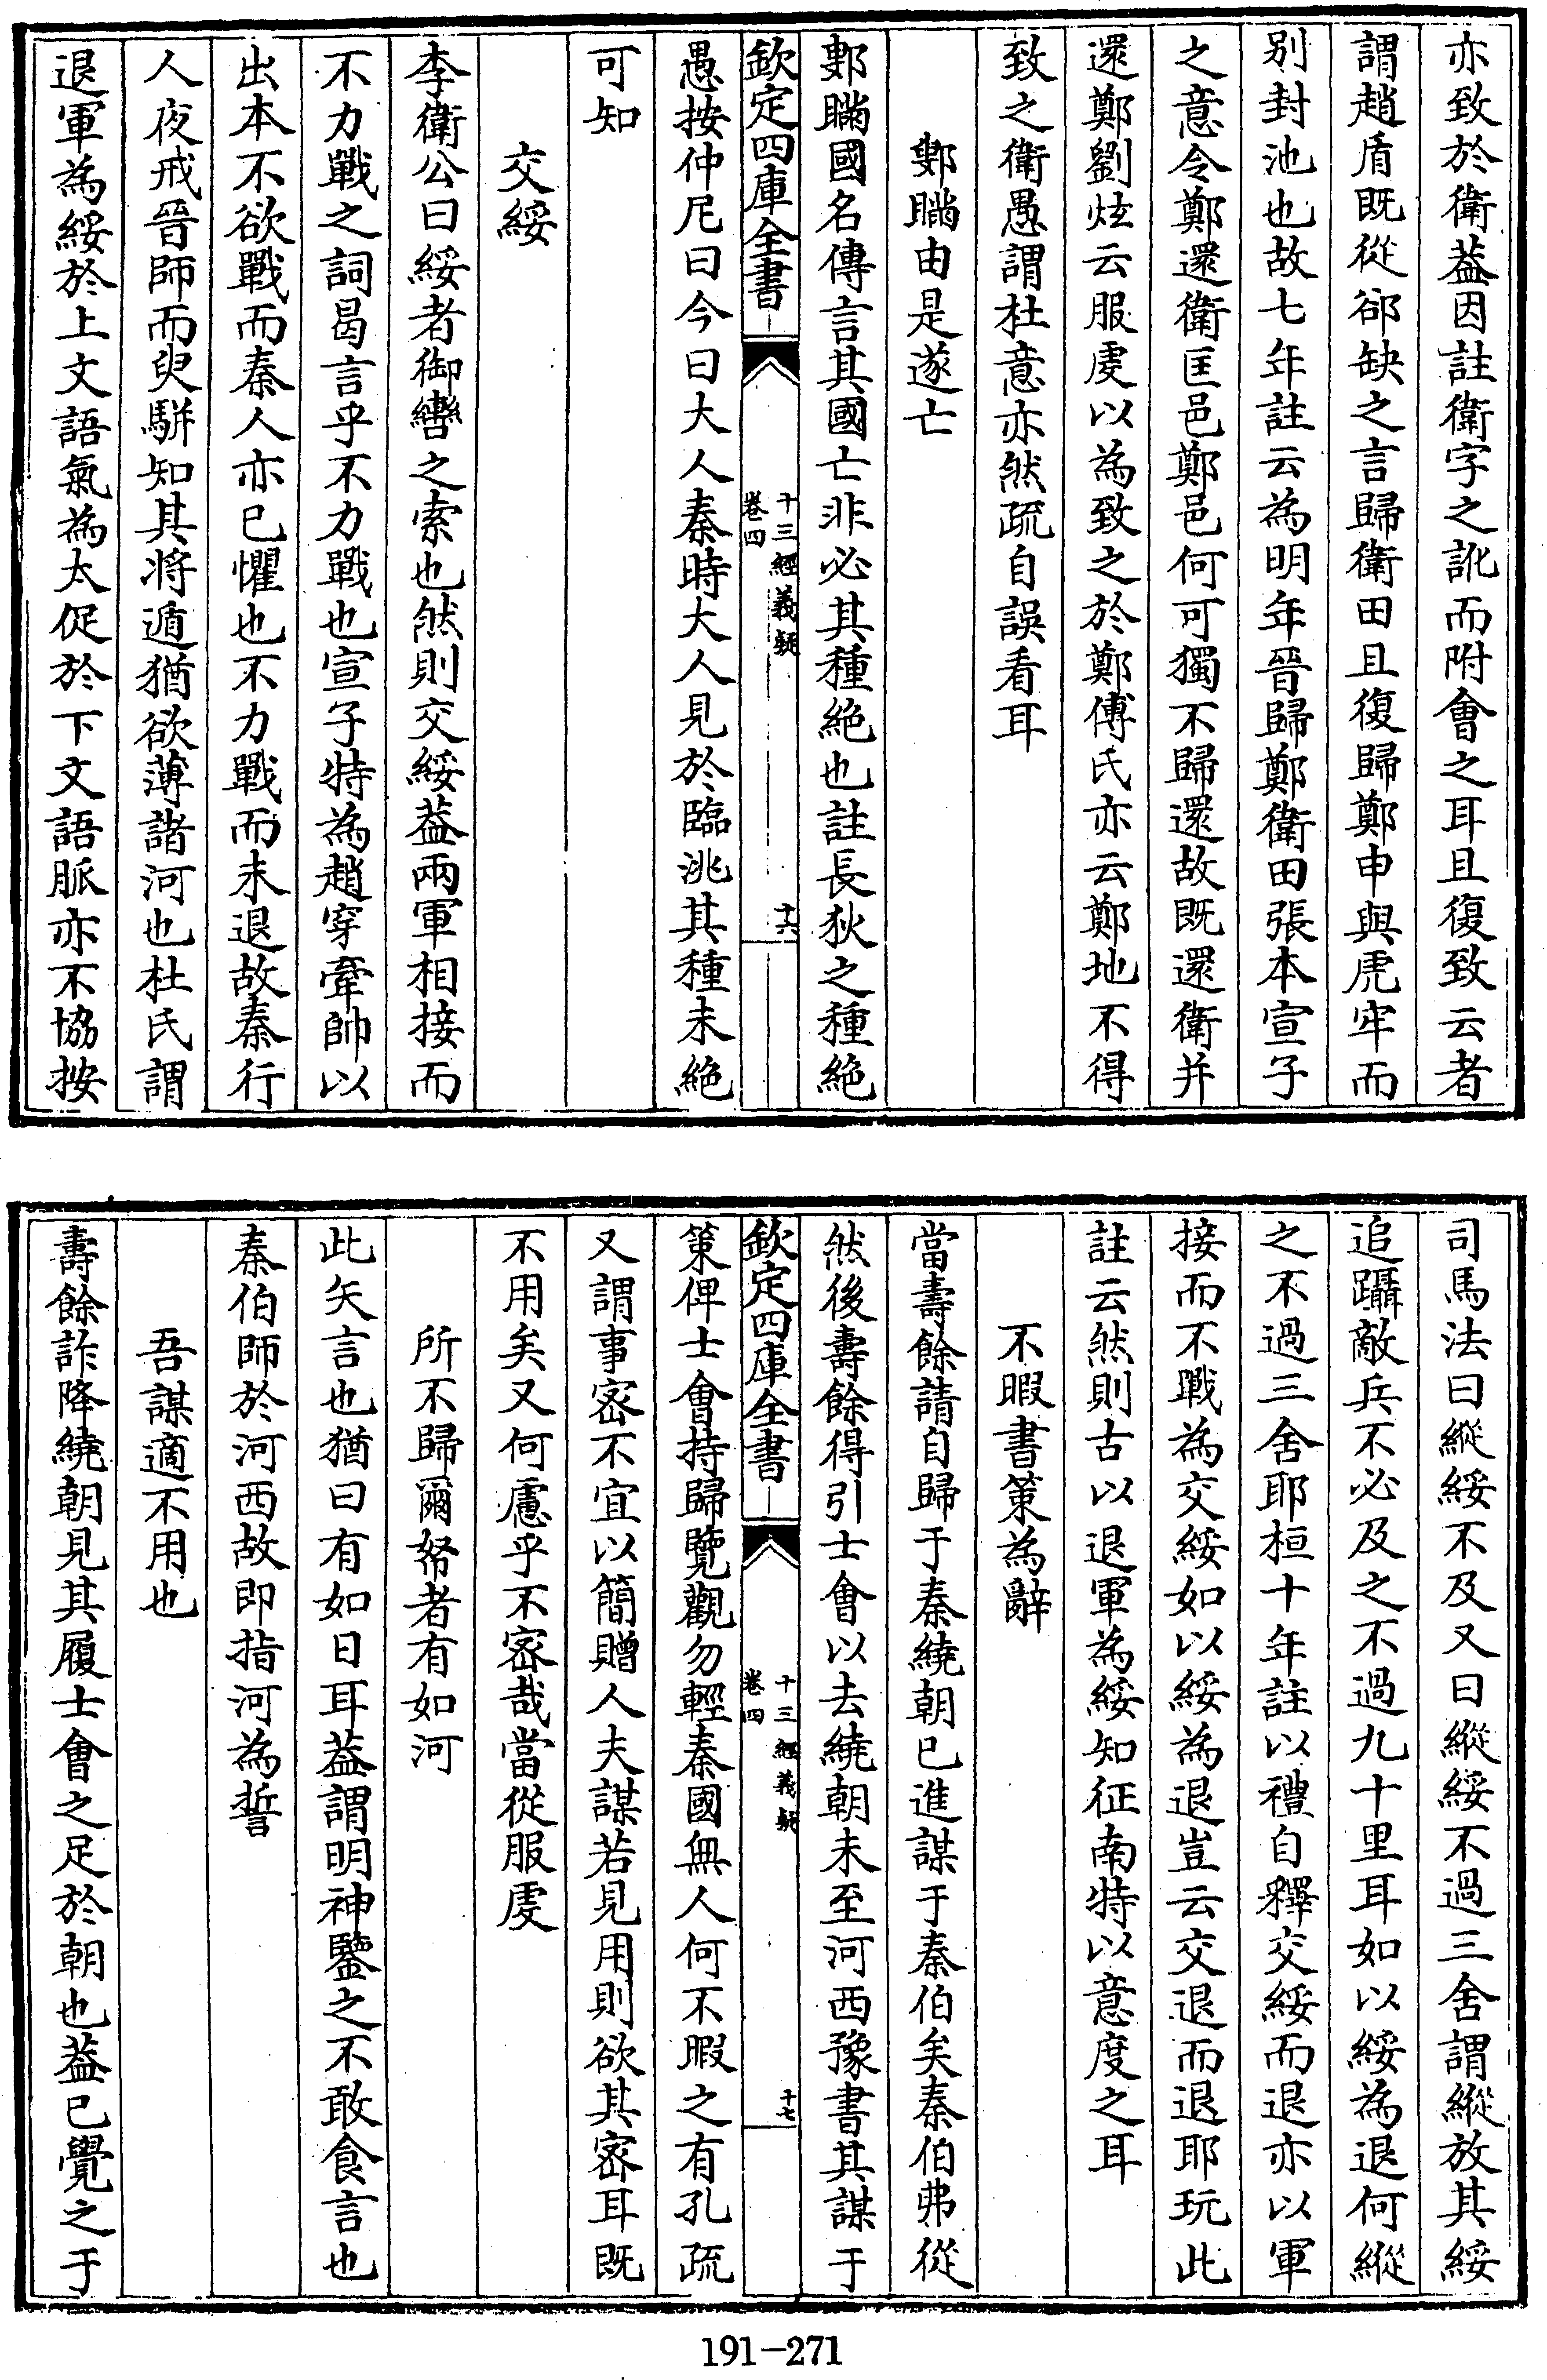 亦致於衛葢因註衛字之訛而附會之耳且復致云者
謂趙盾既從郤缺之言歸衛田且復歸鄭申與虎牢而
别封池也故七年註云為明年晉歸鄭衛田張本宣子
之意令鄭還衛匡邑鄭邑何可獨不歸還故既還衛并
還鄭劉炫云服虔以為致之於鄭傅氏亦云鄭地不得
致之衛愚謂杜意亦然疏自誤看耳
鄋瞞由是遂亡
鄋瞞國名傳言其國亡非必其種絶也註長狄之種絶
欽定四庫全書
十三經義疑
卷四
十六
愚按仲尼曰今曰大人秦時大人見於臨洮其種未絶
可知
交綏
李衛公曰綏者御轡之索也然則交綏葢兩軍相接而
不力戰之詞曷言乎不力戰也宣子特為趙穿牽帥以
出本不欲戰而秦人亦已懼也不力戰而未退故秦行
人夜戒晉師而臾駢知其将遁猶欲薄諸河也杜氏謂
退軍為綏於上文語氣為太促於下文語脈亦不協按
司馬法曰縱綏不及又曰縱綏不過三舍謂縱放其綏
追躡敵兵不必及之不過九十里耳如以綏為退何縱
之不過三舍耶桓十年註以禮自釋交綏而退亦以軍
接而不戰為交綏如以綏為退豈云交退而退耶玩此
註云然則古以退軍為綏知征南特以意度之耳
不暇書策為辭
當壽餘請自歸于秦繞朝已進謀于秦伯矣秦伯弗從
然後壽餘得引士會以去繞朝未至河西豫書其謀于
欽定四庫全書
十三經義疑
卷四
十七
策俾士會持歸覽觀勿輕秦國無人何不暇之有孔疏
又謂事宻不宜以簡贈人夫謀若見用則欲其宻耳既
不用矣又何慮乎不宻哉當從服虔
所不歸爾帑者有如河
此矢言也猶曰有如日耳葢謂明神鑒之不敢食言也
秦伯師於河西故即指河為誓
吾謀適不用也
壽餘詐降繞朝見其履士會之足於朝也葢已覺之于
191-271